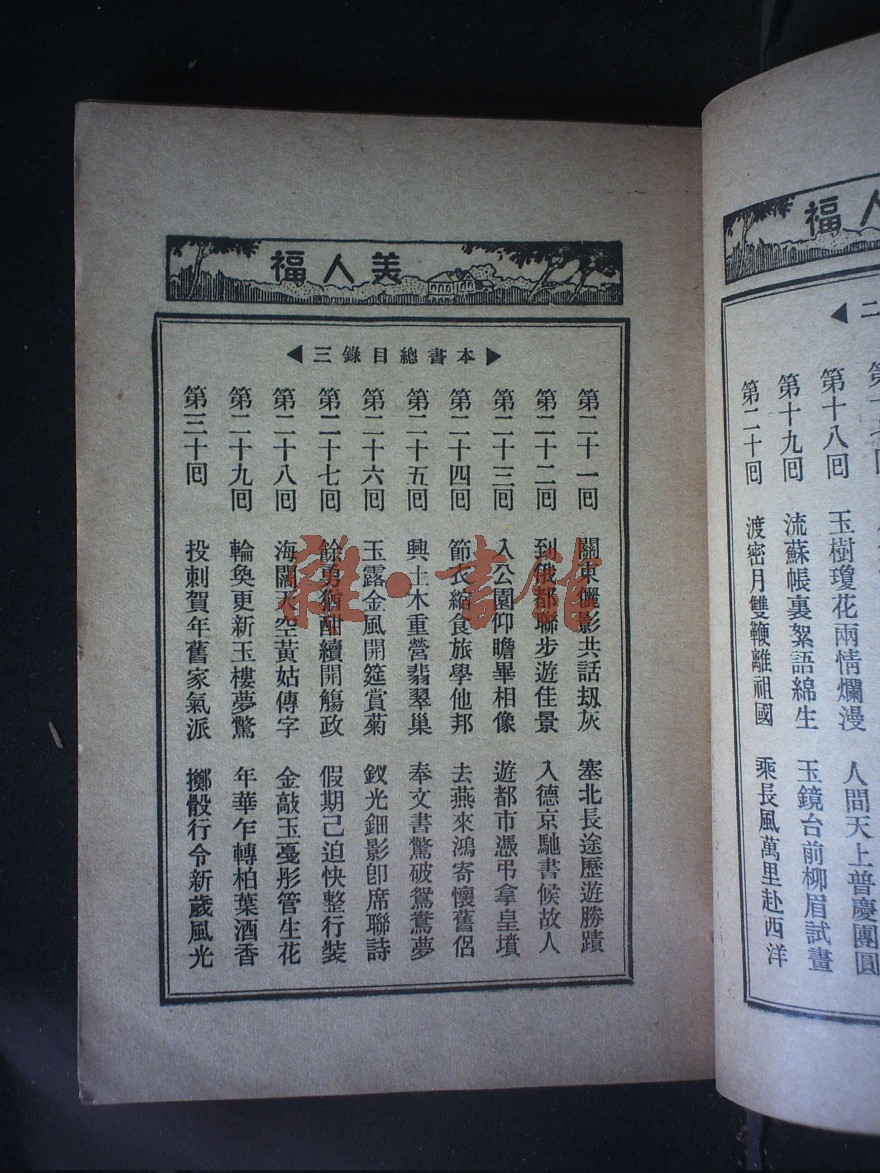 福人
二
第十八回 玉樹瓊花兩情爛漫 人間天上普慶團圓
第十九回 流蘇帳裏絮語綿生 玉鏡台前柳眉試畫
第二十回 渡密月雙鞭離祖國 乘長風萬里赴西洋
福人美
三錄目總書本
第二十一回 關東儷影共話刼灰 塞北長途歷遊勝蹟
第二十二回 到俄都聯步遊佳景 入德京馳書候故人
第二十三回 入公園仰瞻畢相像 遊都市憑弔拿皇墳
第二十四回 節衣縮食旅學他邦 去燕來鴻寄懷舊侶
第二十五回 興土木重營翡翠巢 奉文書驚破鴛鴦夢
第二十六回 玉露金風開筵賞菊 釵光鈿影卽席聯詩
第二十七回 餘勇猶酣續開觴政 假期已迫快整行裝
第二十八回 海闊天空黃姑傳字 金敲玉戞彤管生花
第二十九回 輪奐更新玉樓夢驚 年華乍轉柏葉酒香
第三十回 投刺賀年舊家氣派 擲骰行令新歲風光
雜·書館